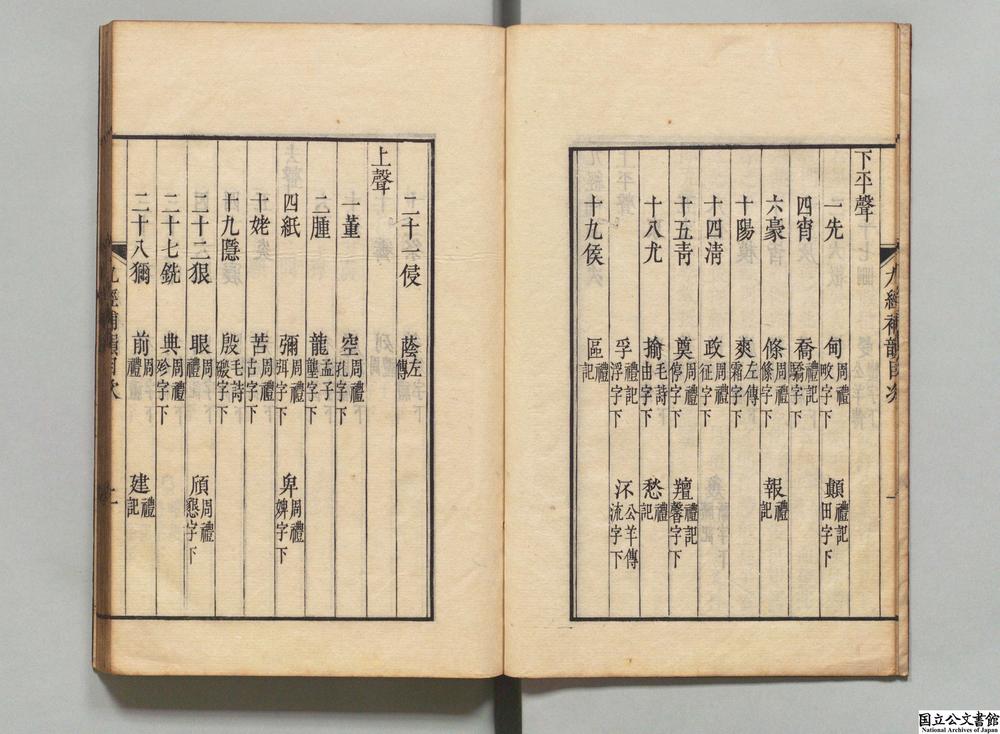 下平聲
一先 甸周禮畋字下 顛禮記田字下
四宵 喬禮記驕字下
六豪 條周禮絛字下 報禮記
十陽 爽左傳霜字下
十四淸 政周禮征字下
十五靑 奠周禮停字下 羶禮記馨字下
十八尤 揄毛詩由字下 愁禮記
孚禮記浮字下 汓公羊傳流字下
十九侯 區禮記
九經補韻目次 一
二十一侵 蔭左傳
上聲
一董 空周禮孔字下
二腫 龍孟子壟字下
四紙 彌周禮弭字下 卑周禮婢字下
十姥 苦周禮古字下
十九隱 殷毛詩
二十二狠 眼周禮 頎周禮懇字下
二十七銑 典周禮殄字下
二十八獮 前周禮 建禮記
九經補韻目次
国立公文書館
National Archives of Japan